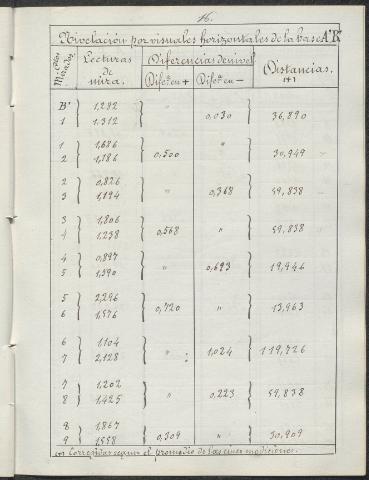 16.
Nivelación por visuales horizontales de la base A'B'
Ptos Mirados. Lecturas de mira. Diferencias de nivel Distancias.
Difer. en + Difer. en - (1)
B' 1,282 " 0,030 36,890
1 1.312
1 1,686 0,500 " 30,949
2 1,186
2 0,826 " 0,368 59,838
3 1,194
3 1,806 0,568 " 59,838
4 1,238
4 0,897 " 0,693 19,946
5 1,590
5 2,296 0,720 " 13,963
6 1,576
6 1,104 " 1,024 119,726
7 2,128
7 1,202 " 0,223 59,838
8 1,425
8 1,867 0,309 " 30,909
9 1,558
(1) Corregidas segun el promedio de las cinco mediciones.